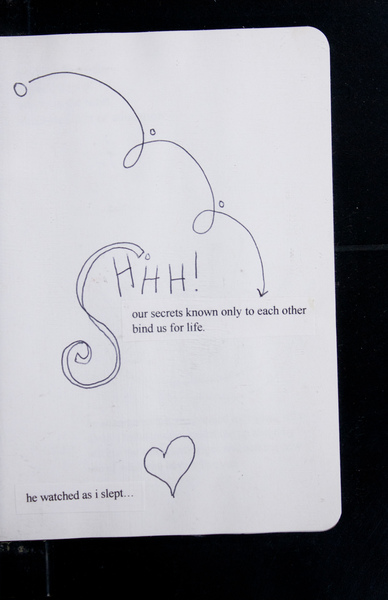 SHHH!
our secrets known only to each other
bind us for life.
he watched as i slept...